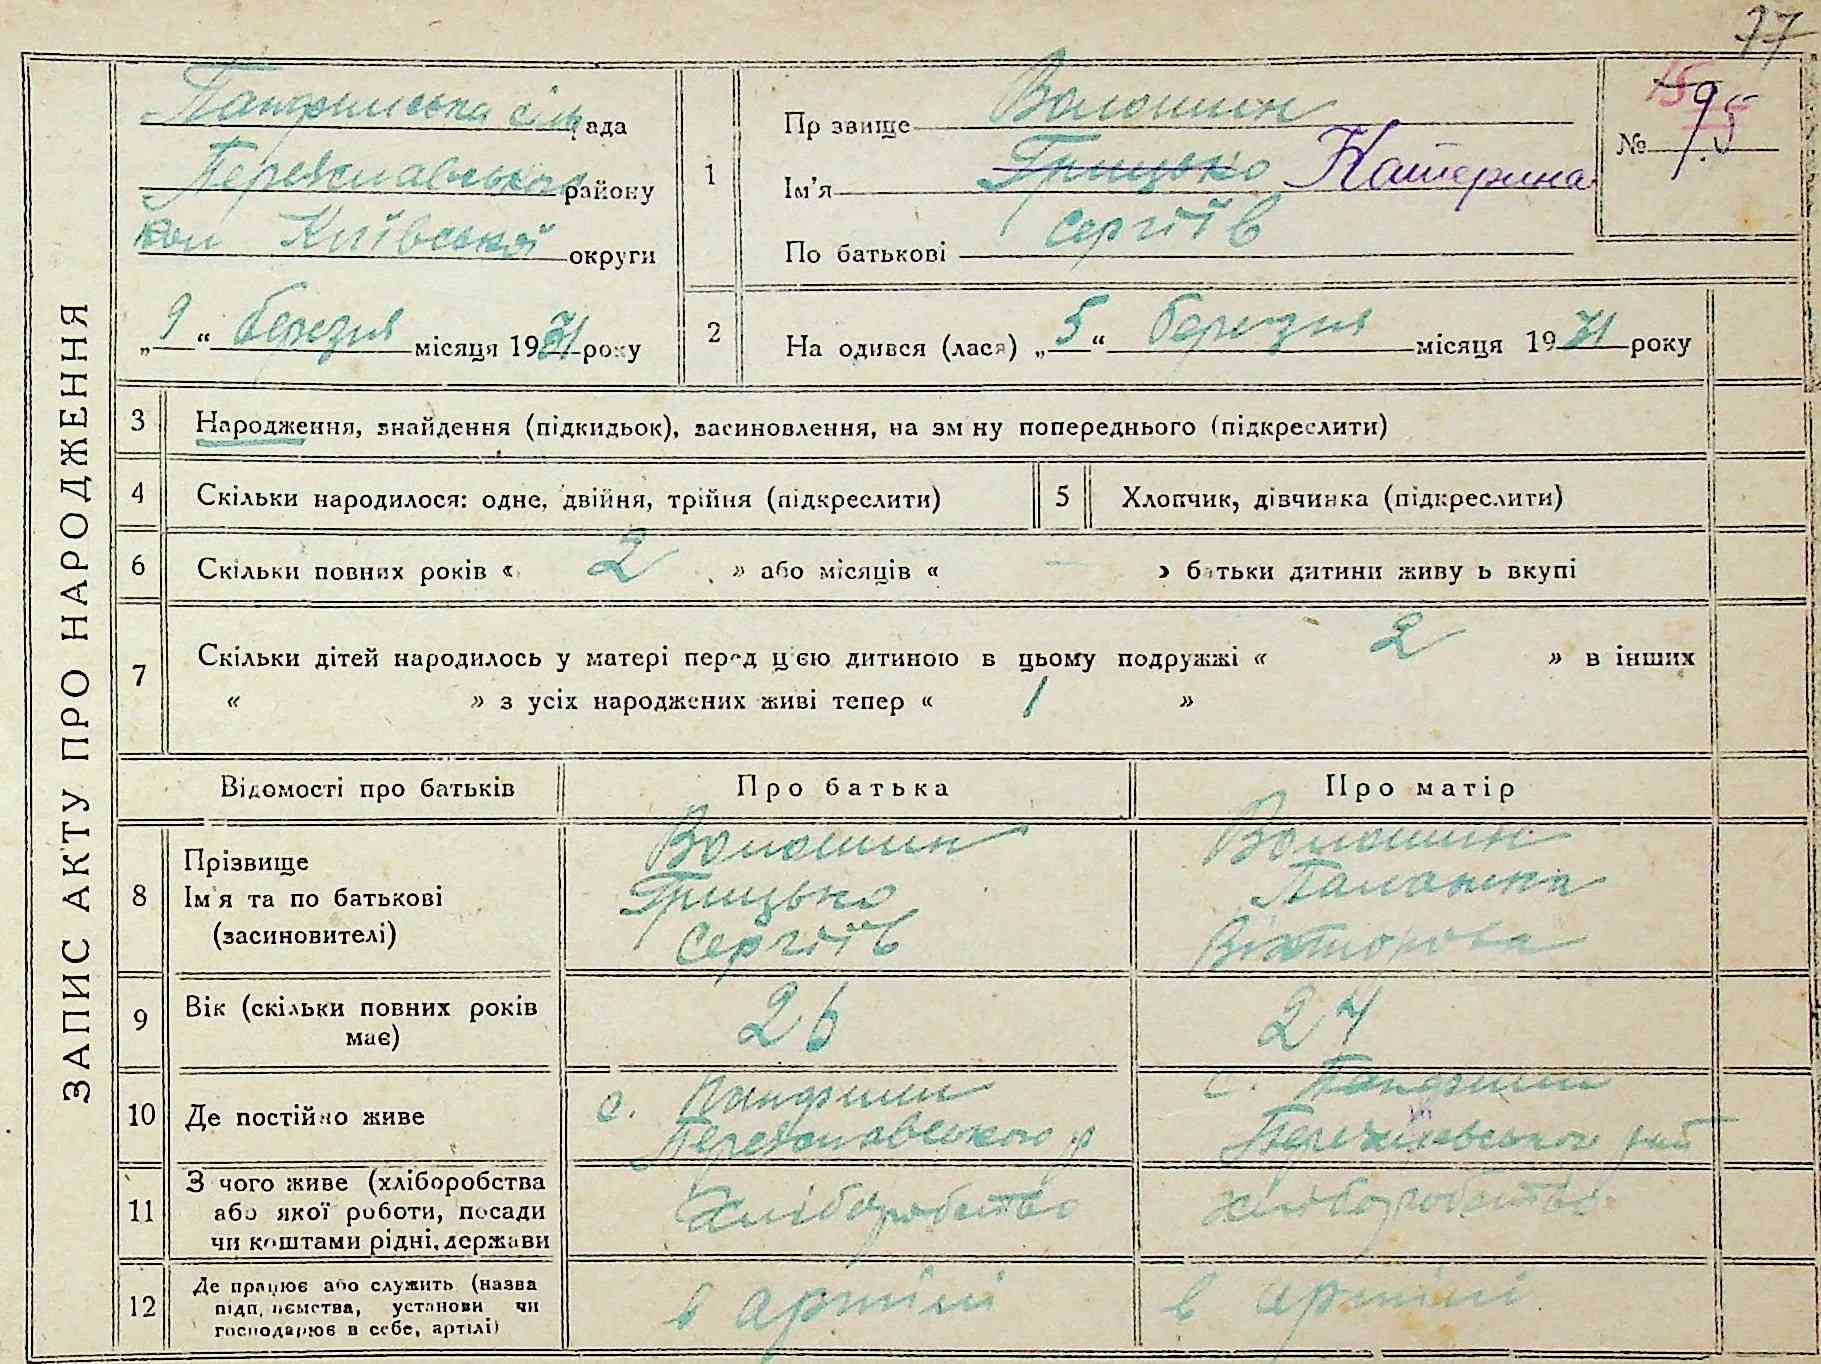 77
Панфильська сіль рада
Переяславського району
кол Київської округи
„9“ березня місяця 1931 року
ЗАПИС АКТУ ПРО НАРОДЖЕННЯ
1
Пр звище Волошин
Ім’я Грицько Катерина
По батькові Сергіїв
№ 95
2
На одився (лася) „5“ березня місяця 1931 року
3 Народження, знайдення (підкидьок), засиновлення, на зм ну попереднього (підкреслити)
4 Скільки народилося: одне, двійня, трійня (підкреслити)
5 Хлопчик, дівчинка (підкреслити)
6 Скільки повних років « 2 » або місяців « — » батьки дитини живу ь вкупі
7 Скільки дітей народилось у матері перед цією дитиною в цьому подружжі « 2 » в інших
« » з усіх народжених живі тепер « 1 »
Відомості про батьків
Про батька
Про матір
8
Прізвище
Ім’я та по батькові
(засиновителі)
Волошин
Грицько
Сергіїв
Волошин
Палажка
Вікторова
9
Вік (скільки повних років
має)
26
24
10 Де постійно живе
с. Панфили
Переяславського р
с. Панфили
Переяславського рай
11
З чого живе (хліборобства
або якої роботи, посади
чи коштами рідні, держави
Хліборобство
хліборобство
12
Де працює або служить (назва
підп. иємства, установи чи
господарює в себе, артілі)
в артілі
в артілі